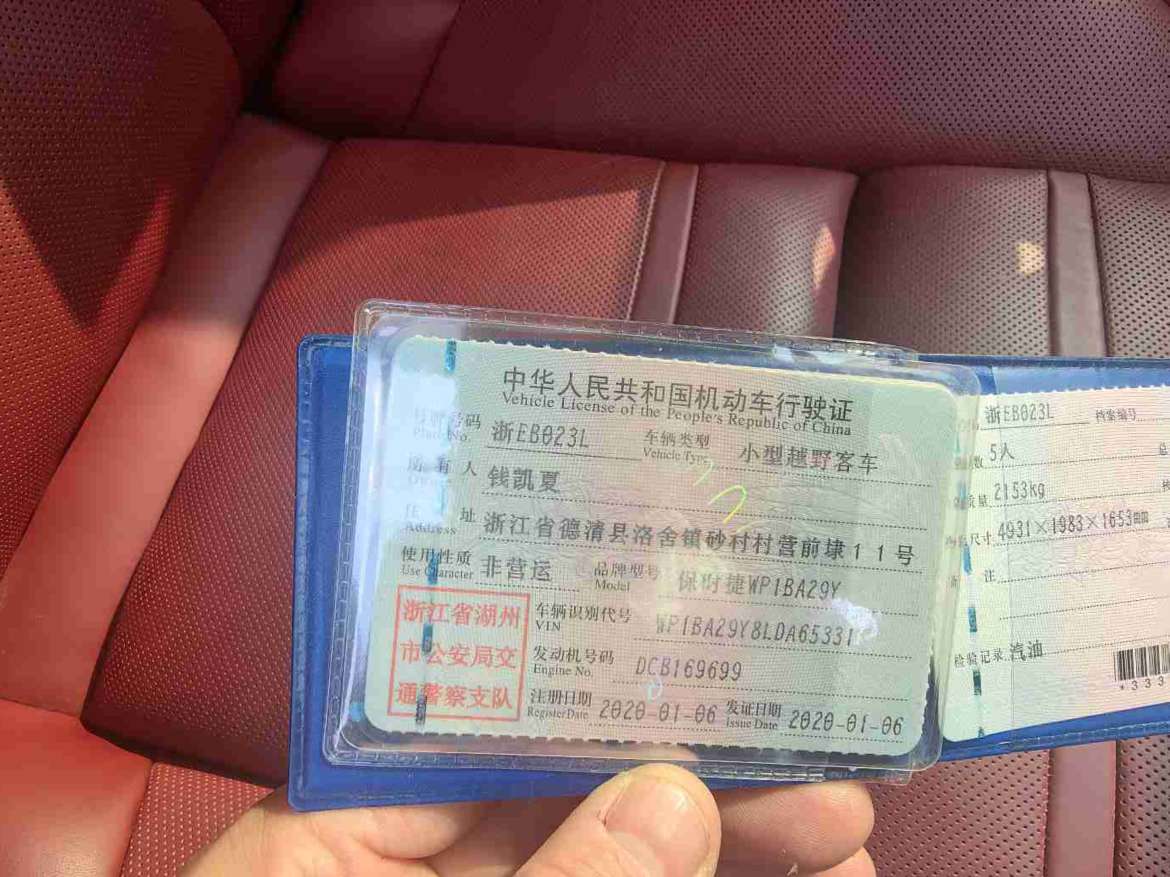 中华人民共和国机动车行驶证
Vehicle License of the People's Republic of China
号牌号码 浙EB023L 车辆类型 小型越野客车
Plate No. Vehicle Type
所有人 钱凯夏
Owner
住址 浙江省德清县洛舍镇砂村村营前埭11号
Address
使用性质 非营运 品牌型号 保时捷WP1BA29Y
Use Character Model
浙江省湖州
市公安局交
通警察支队
车辆识别代号 WP1BA29Y8LDA65331
VIN
发动机号码 DCB169699
Engine No.
注册日期 2020-01-06 发证日期 2020-01-06
Register Date Issue Date
浙EB023L 档案编号
5人 总
质量 2153kg
尺寸 4931×1983×1653mm
备注
检验记录 汽油
*333